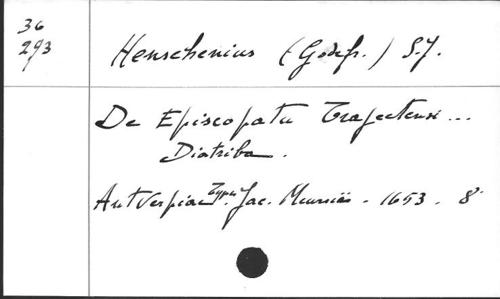 36
293
Henschenius (Godefr.) S.J.
De Episcopatu Trajectensi ...
Diatriba.
Antverpiae Typis Jac. Meursii - 1653. 8°